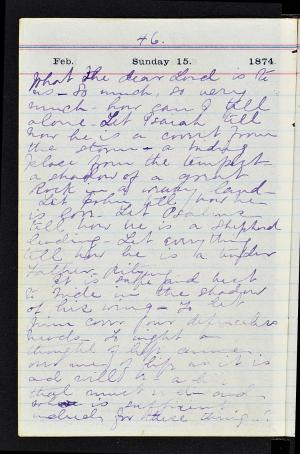 46.
Feb. Sunday 15. 1874
What the dear Lord is to
us - So much, so very
much - how can I tell
alone - Let Isaiah tell
how he is a covert from
the storm - a hiding
place from the tempest
a shadow of a great
Rock in a weary land -
Let John tell how he
is Son. Let Psalms
tell how he is a shepherd
leading - Let everything
tell how he is a tender
Father - Pitying
It is safe and best
to hide in the shadow
of his wing - To let
him cover our defenceless
heads - To
thought of
our
and
that much
is
for these things